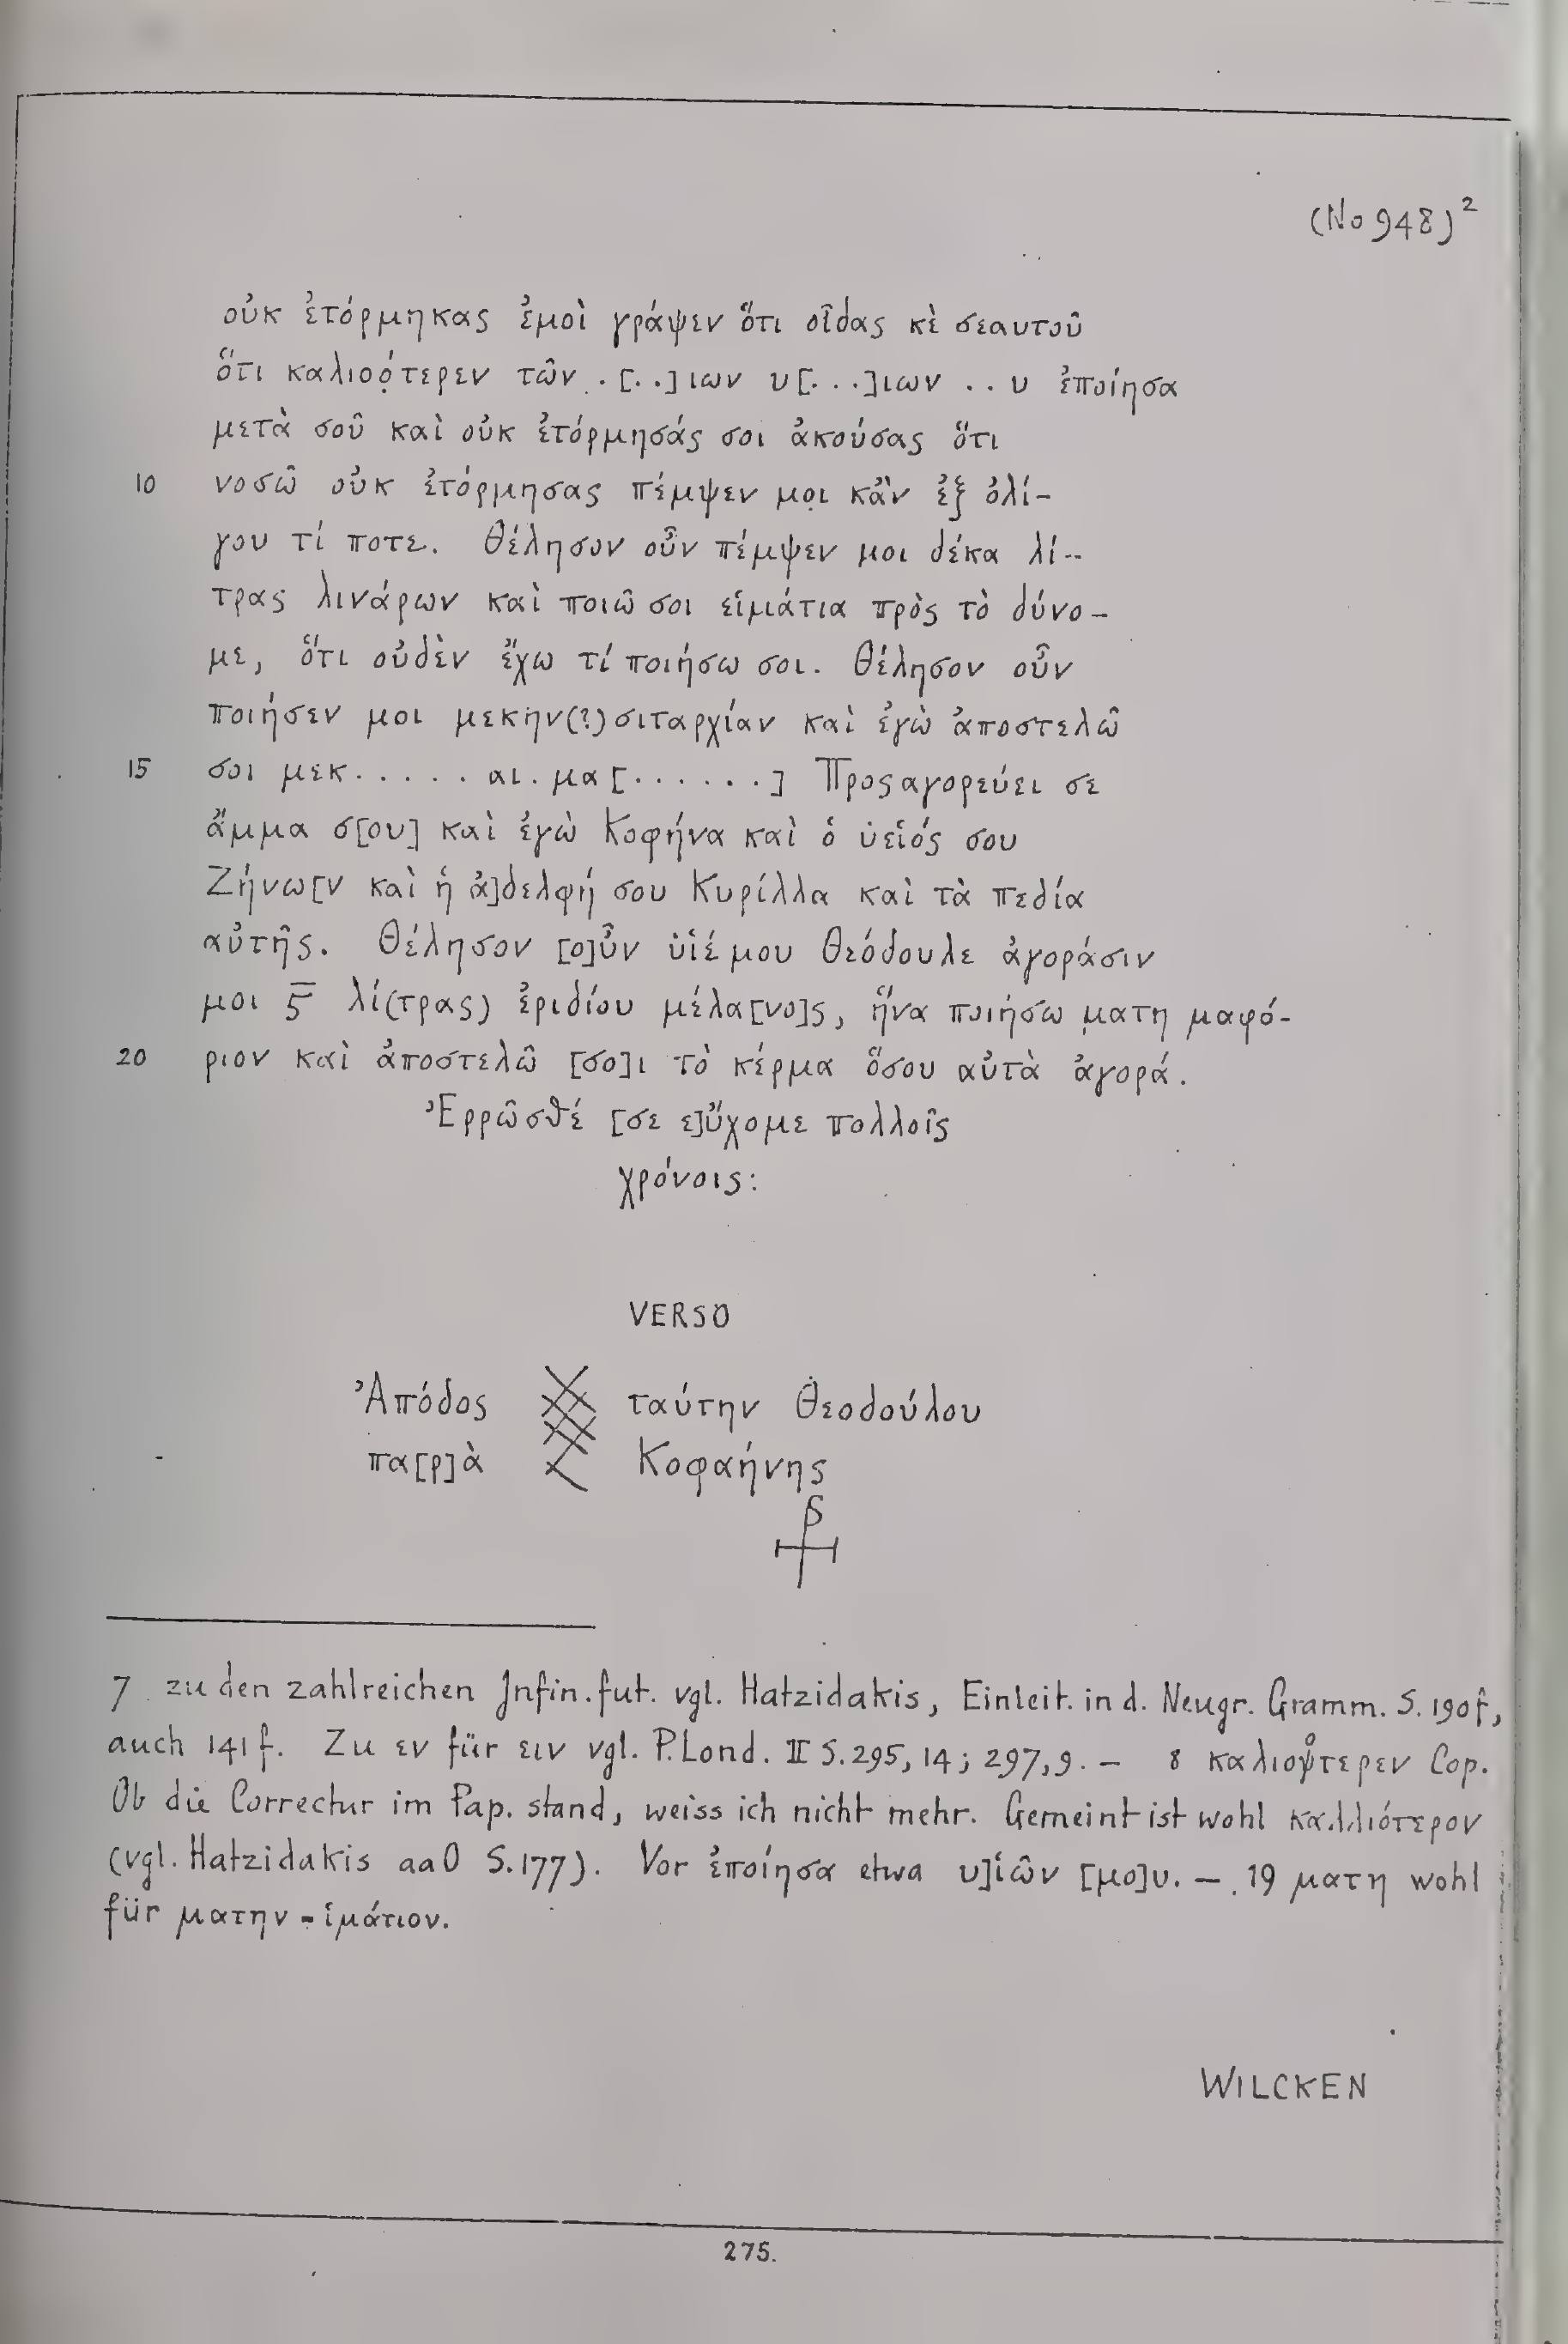 (No 948)²
οὐκ ἐτόρμηκας ἐμοὶ γράψεν ὅτι οἶδας κὲ σεαυτοῦ
ὅτι καλιοό̣τερεν τῶν . [..]ιων υ[...]ιων .. υ ἐποίησα
μετὰ σοῦ καὶ οὐκ ἐτόρμησάς σοι ἀκούσας ὅτι
10 νοσῶ οὐκ ἐτόρμησας πέμψεν μοι κἂν ἐξ ὀλί-
γου τί ποτε. Θέλησον οὖν πέμψεν μοι δέκα λί-
τρας λινάρων καὶ ποιῶ σοι εἱμάτια πρὸς τὸ δύνο-
με, ὅτι οὐδὲν ἔχω τί ποιήσω σοι. Θέλησον οὖν
ποιήσεν μοι μεκην(?)σιταρχίαν καὶ ἐγὼ ἀποστελῶ
15 σοι μεκ..... αι. μα[......] Προςαγορεύει σε
ἄμμα σ[ου] καὶ ἐγὼ Κοφήνα καὶ ὁ ὑειός σου
Ζήνω[ν καὶ ἡ ἀ]δελφή σου Κυρίλλα καὶ τὰ πεδία
αὐτῆς. Θέλησον [ο]ὖν ὑἱέ μου Θεόδουλε ἀγοράσιν
μοι ϛ̅ λί(τρας) ἐριδίου μέλα[νο]ς, ἥνα ποιήσω ματη μαφό-
20 ριον καὶ ἀποστελῶ [σο]ι τὸ κέρμα ὅσου αὐτὰ ἀγορά.
Ἐρρῶσθέ [σε ε]ὔχομε πολλοῖς
χρόνοις:
VERSO
Ἀπόδος ταύτην Θεοδούλου
πα[ρ]ὰ Κοφαήνης
⳨
7 zu den zahlreichen Infin. fut. vgl. Hatzidakis, Einleit. in d. Neugr. Gramm. S. 190f,
auch 141 f. Zu εν für ειν vgl. P. Lond. II S. 295, 14; 297, 9. — 8 καλιοτερεν Cop.
Ob die Correctur im Pap. stand, weiss ich nicht mehr. Gemeint ist wohl καλλιότερον
(vgl. Hatzidakis aaO S. 177). Vor ἐποίησα etwa υ]ἱῶν [μο]υ. — 19 ματη wohl
für ματην = ἱμάτιον.
WILCKEN
275.